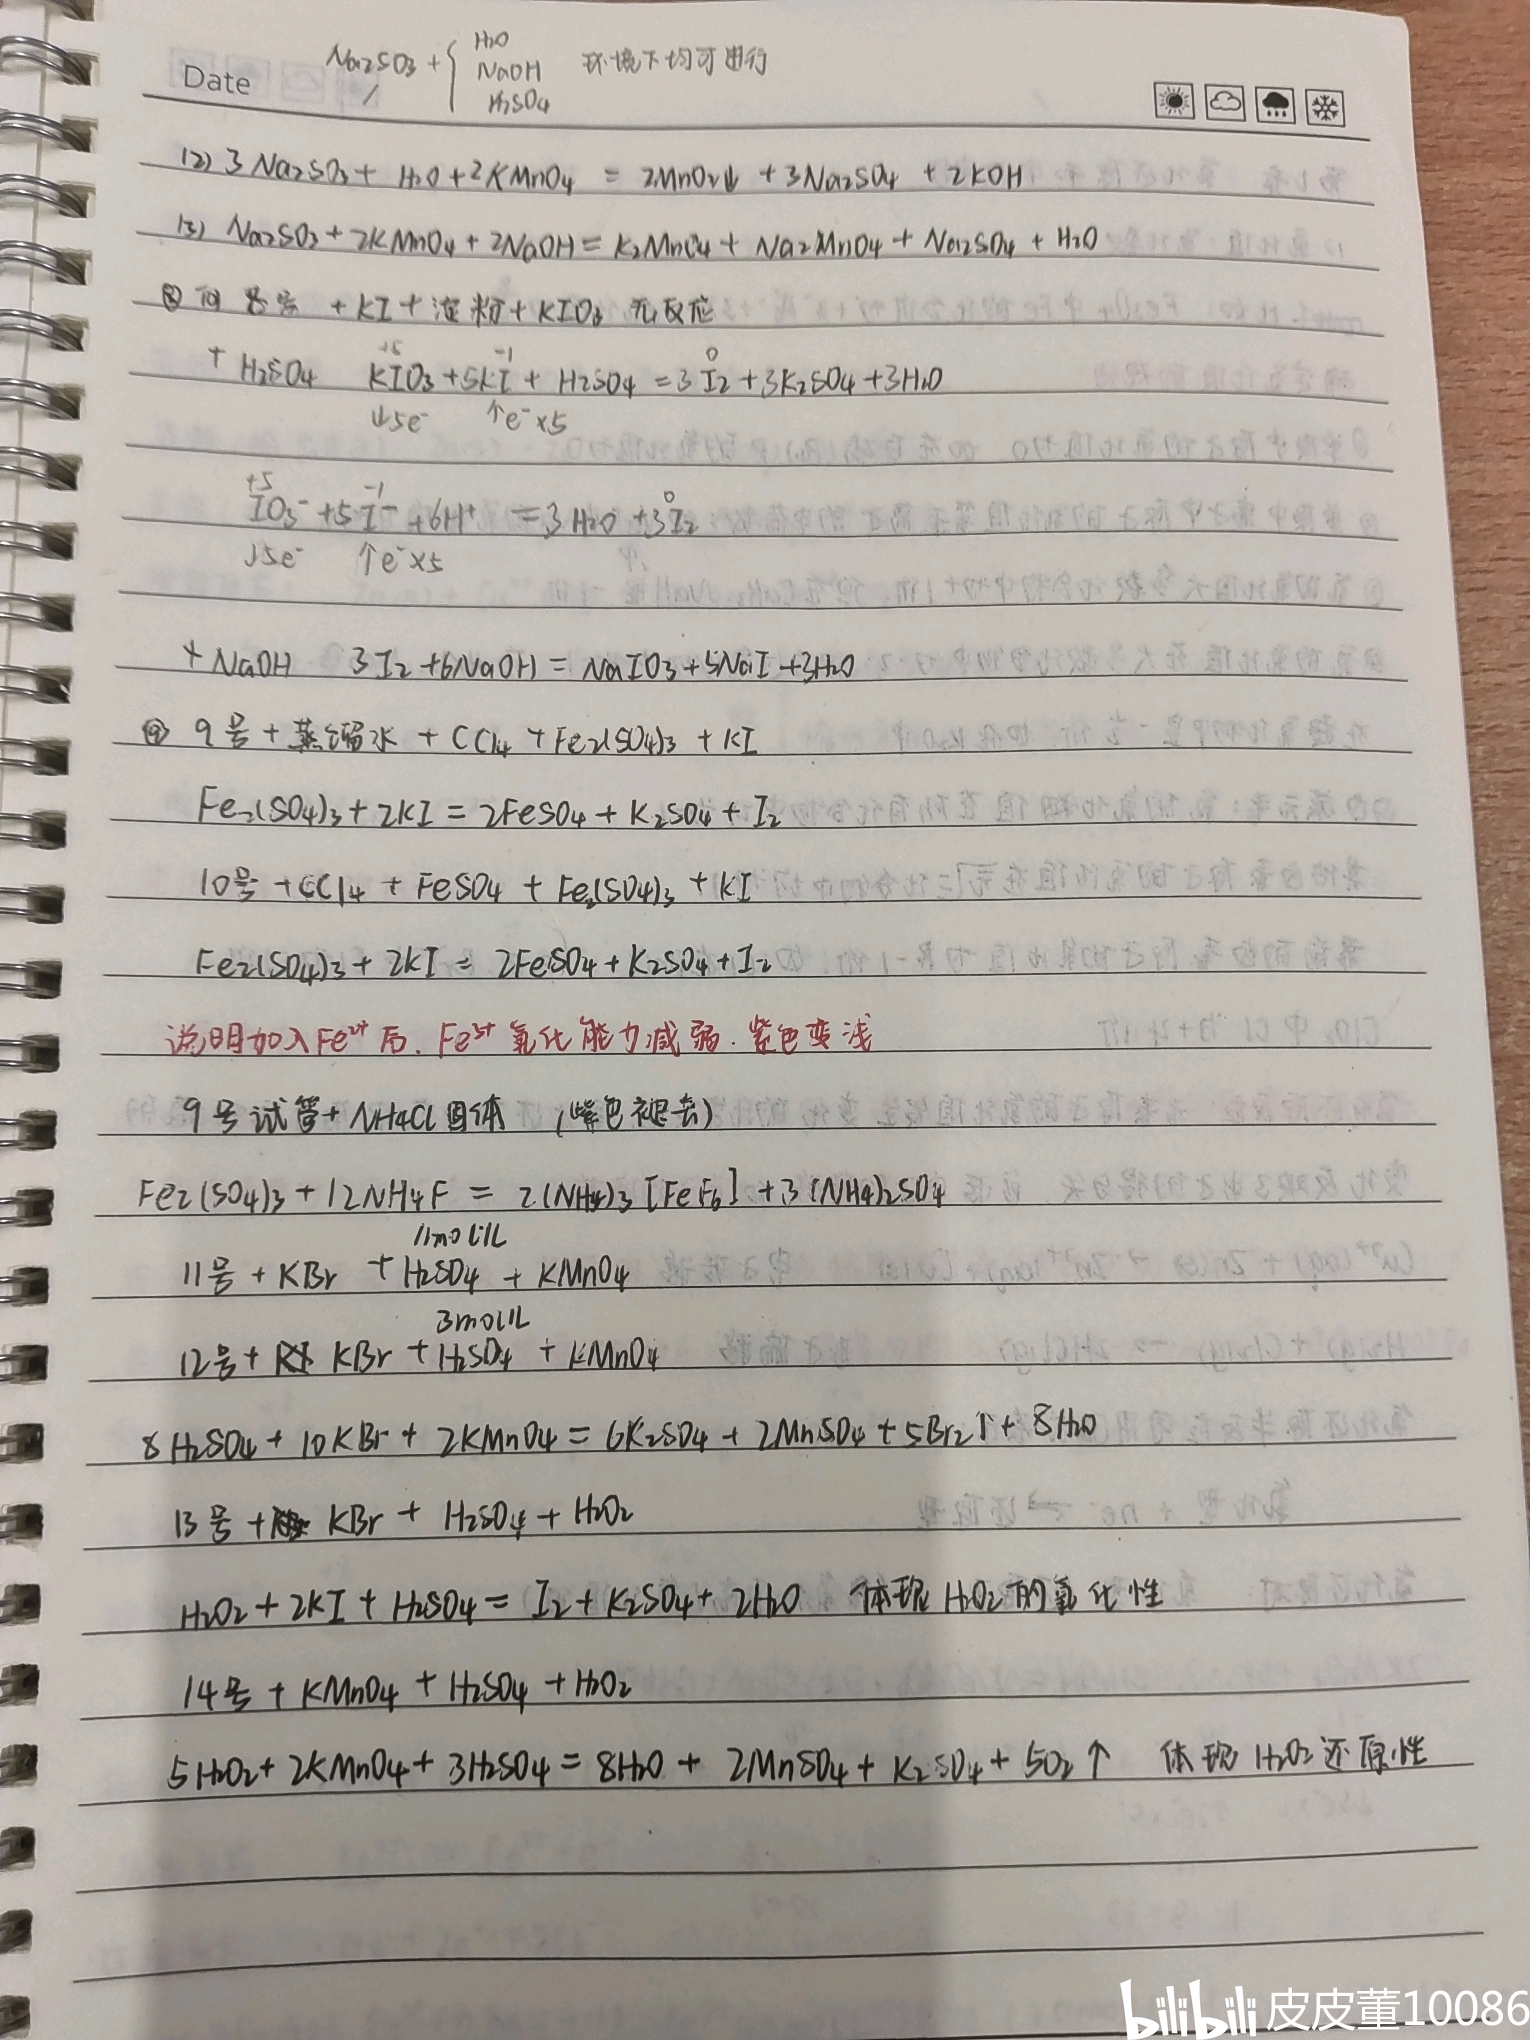 Date
Na2SO3 + { H2O
NaOH 环境下均可进行
H2SO4
(2) 3Na2SO3 + H2O + 2KMnO4 = 2MnO2↓ + 3Na2SO4 + 2KOH
(3) Na2SO3 + 2KMnO4 + 2NaOH = K2MnO4 + Na2MnO4 + Na2SO4 + H2O
+ KI + 淀粉 + KIO3 无反应
+5 -1 0
+ H2SO4 KIO3 + 5KI + H2SO4 = 3I2 + 3K2SO4 + 3H2O
↓5e- ↑e-×5
+5 -1 0
IO3- + 5I- + 6H+ = 3H2O + 3I2
↓5e- ↑e-×5
+ NaOH 3I2 + 6NaOH = NaIO3 + 5NaI + 3H2O
④ 9号 + 蒸馏水 + CCl4 + Fe2(SO4)3 + KI
Fe2(SO4)3 + 2KI = 2FeSO4 + K2SO4 + I2
10号 + CCl4 + FeSO4 + Fe2(SO4)3 + KI
Fe2(SO4)3 + 2KI = 2FeSO4 + K2SO4 + I2
说明加入Fe2+后. Fe3+氧化能力减弱. 紫色变浅
9号试管 + NH4Cl固体 (紫色褪去)
Fe2(SO4)3 + 12NH4F = 2(NH4)3[FeF6] + 3(NH4)2SO4
1mol/L
11号 + KBr + H2SO4 + KMnO4
3mol/L
12号 + KBr + H2SO4 + KMnO4
8H2SO4 + 10KBr + 2KMnO4 = 6K2SO4 + 2MnSO4 + 5Br2↑ + 8H2O
13号 + KBr + H2SO4 + H2O2
H2O2 + 2KI + H2SO4 = I2 + K2SO4 + 2H2O 体现H2O2的氧化性
14号 + KMnO4 + H2SO4 + H2O2
5H2O2 + 2KMnO4 + 3H2SO4 = 8H2O + 2MnSO4 + K2SO4 + 5O2↑ 体现H2O2还原性
bilibili 皮皮董10086